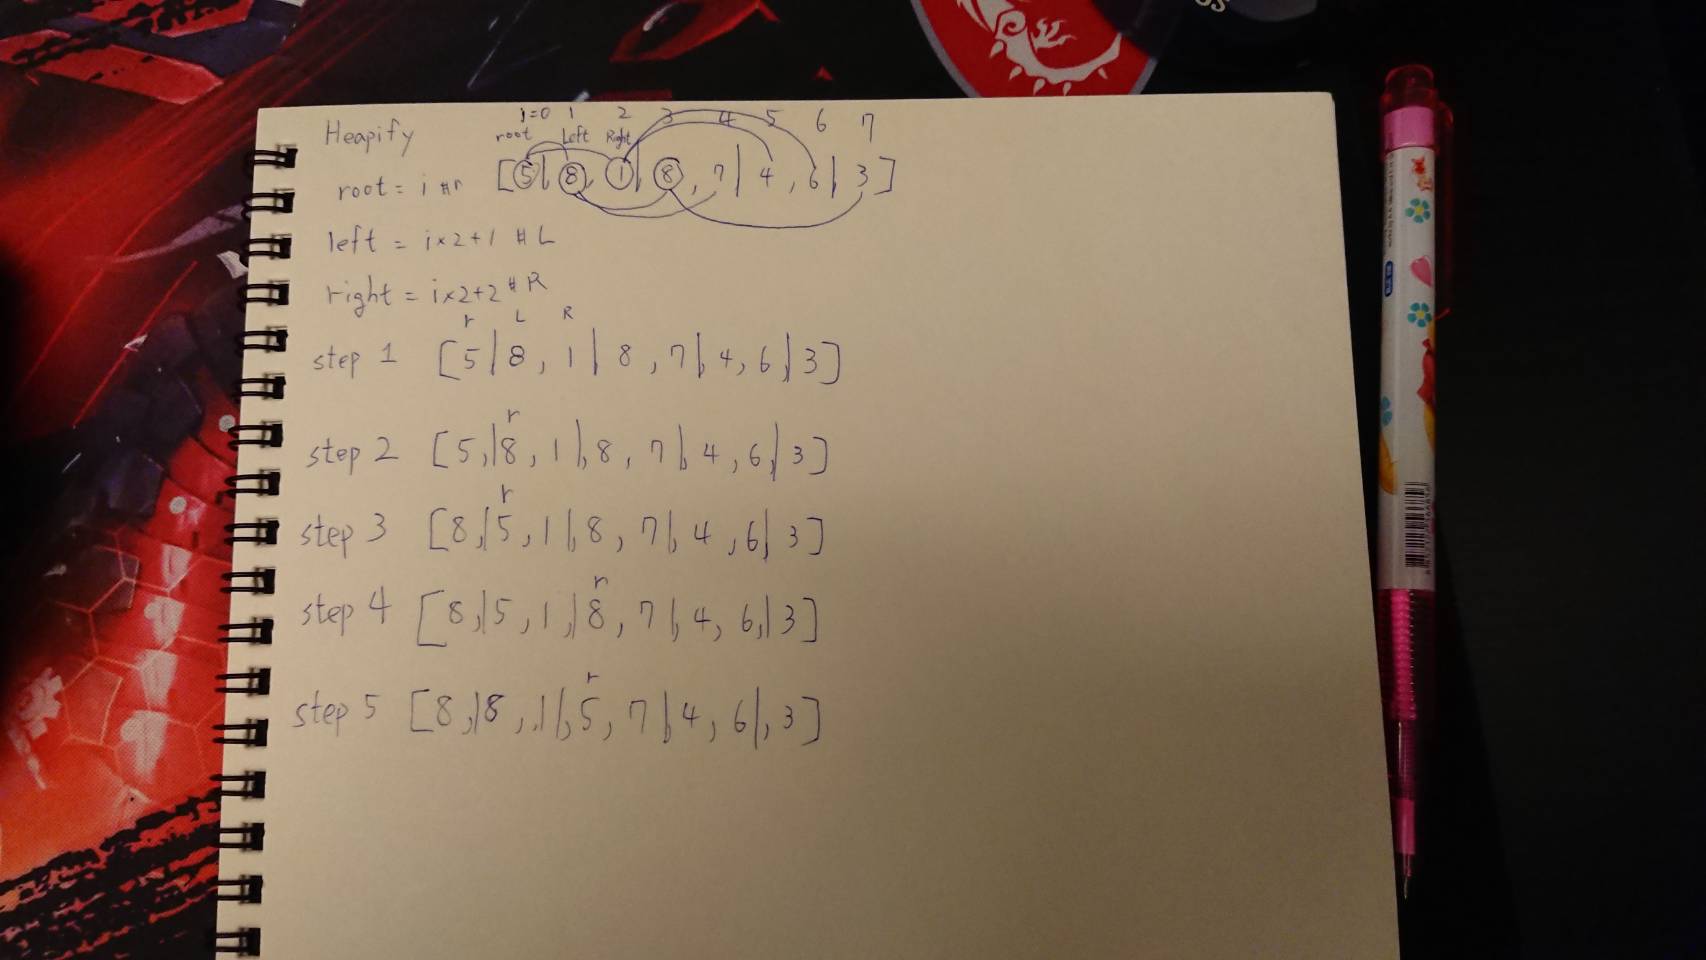 i=0 1 2 3 4 5 6 7
Heapify root Left Right
root = i #r [5| 8, 1|, 8, 7| 4, 6|, 3]
left = i×2+1 #L
right = i×2+2 #R
r L R
step 1 [5| 8, 1| 8, 7|, 4, 6,| 3]
r
step 2 [5,|8, 1|, 8, 7|, 4, 6,| 3]
r
step 3 [8,|5, 1|, 8, 7|, 4, 6,| 3]
r
step 4 [8,|5, 1,|8, 7|, 4, 6,| 3]
r
step 5 [8,|8, 1|, 5, 7|, 4, 6|, 3]